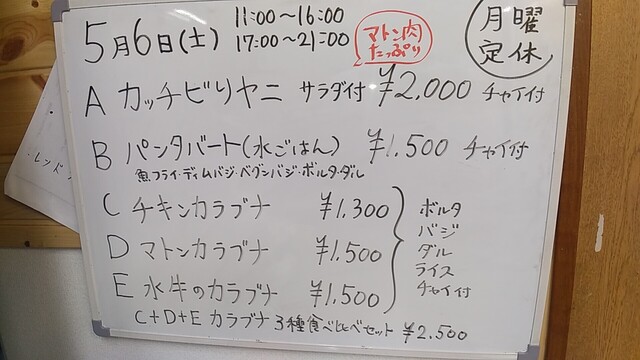 5月6日(土)
11:00～16:00
17:00～21:00
マトン肉
たっぷり
月曜
定休
A カッチビリヤニ サラダ付 ¥2,000 チャイ付
B パンタバート(水ごはん) ¥1,500 チャイ付
魚フライ・ディムバジ・ベグンバジ・ボルタ・ダル
C チキンカラブナ ¥1,300
D マトンカラブナ ¥1,500
E 水牛のカラブナ ¥1,500
ボルタ
バジ
ダル
ライス
チャイ付
C+D+E カラブナ3種食べ比べセット ¥2,500